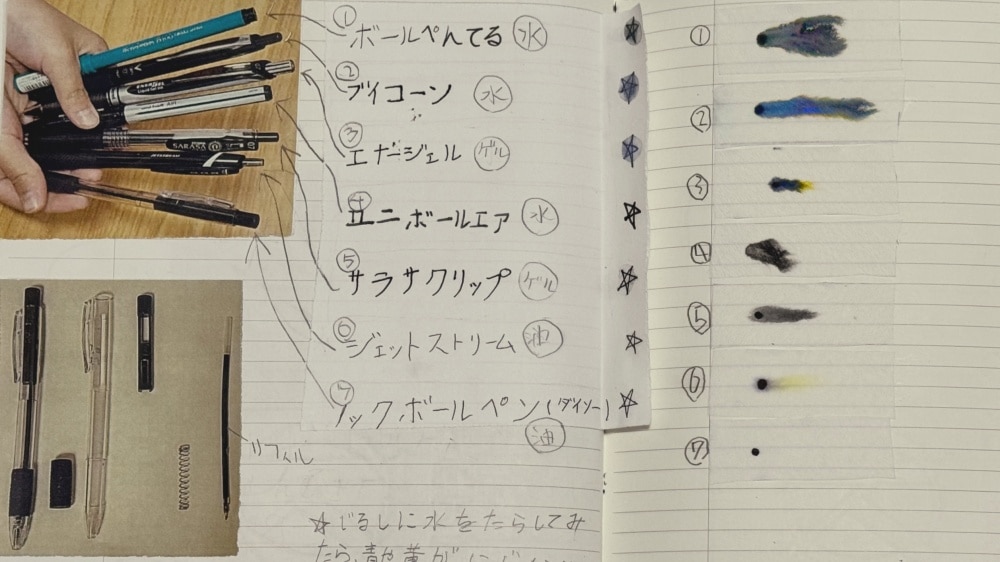 ① ボールぺんてる 水
② ブイコーン 水
③ エナージェル ゲル
④ ユニボールエア 水
⑤ サラサクリップ ゲル
⑥ ジェットストリーム 油
⑦ ノックボールペン(ダイソー)
油
リフィル
☆じるしに水をたらしてみ
たら、青や黄が
SARASA
①
②
③
④
⑤
⑥
⑦